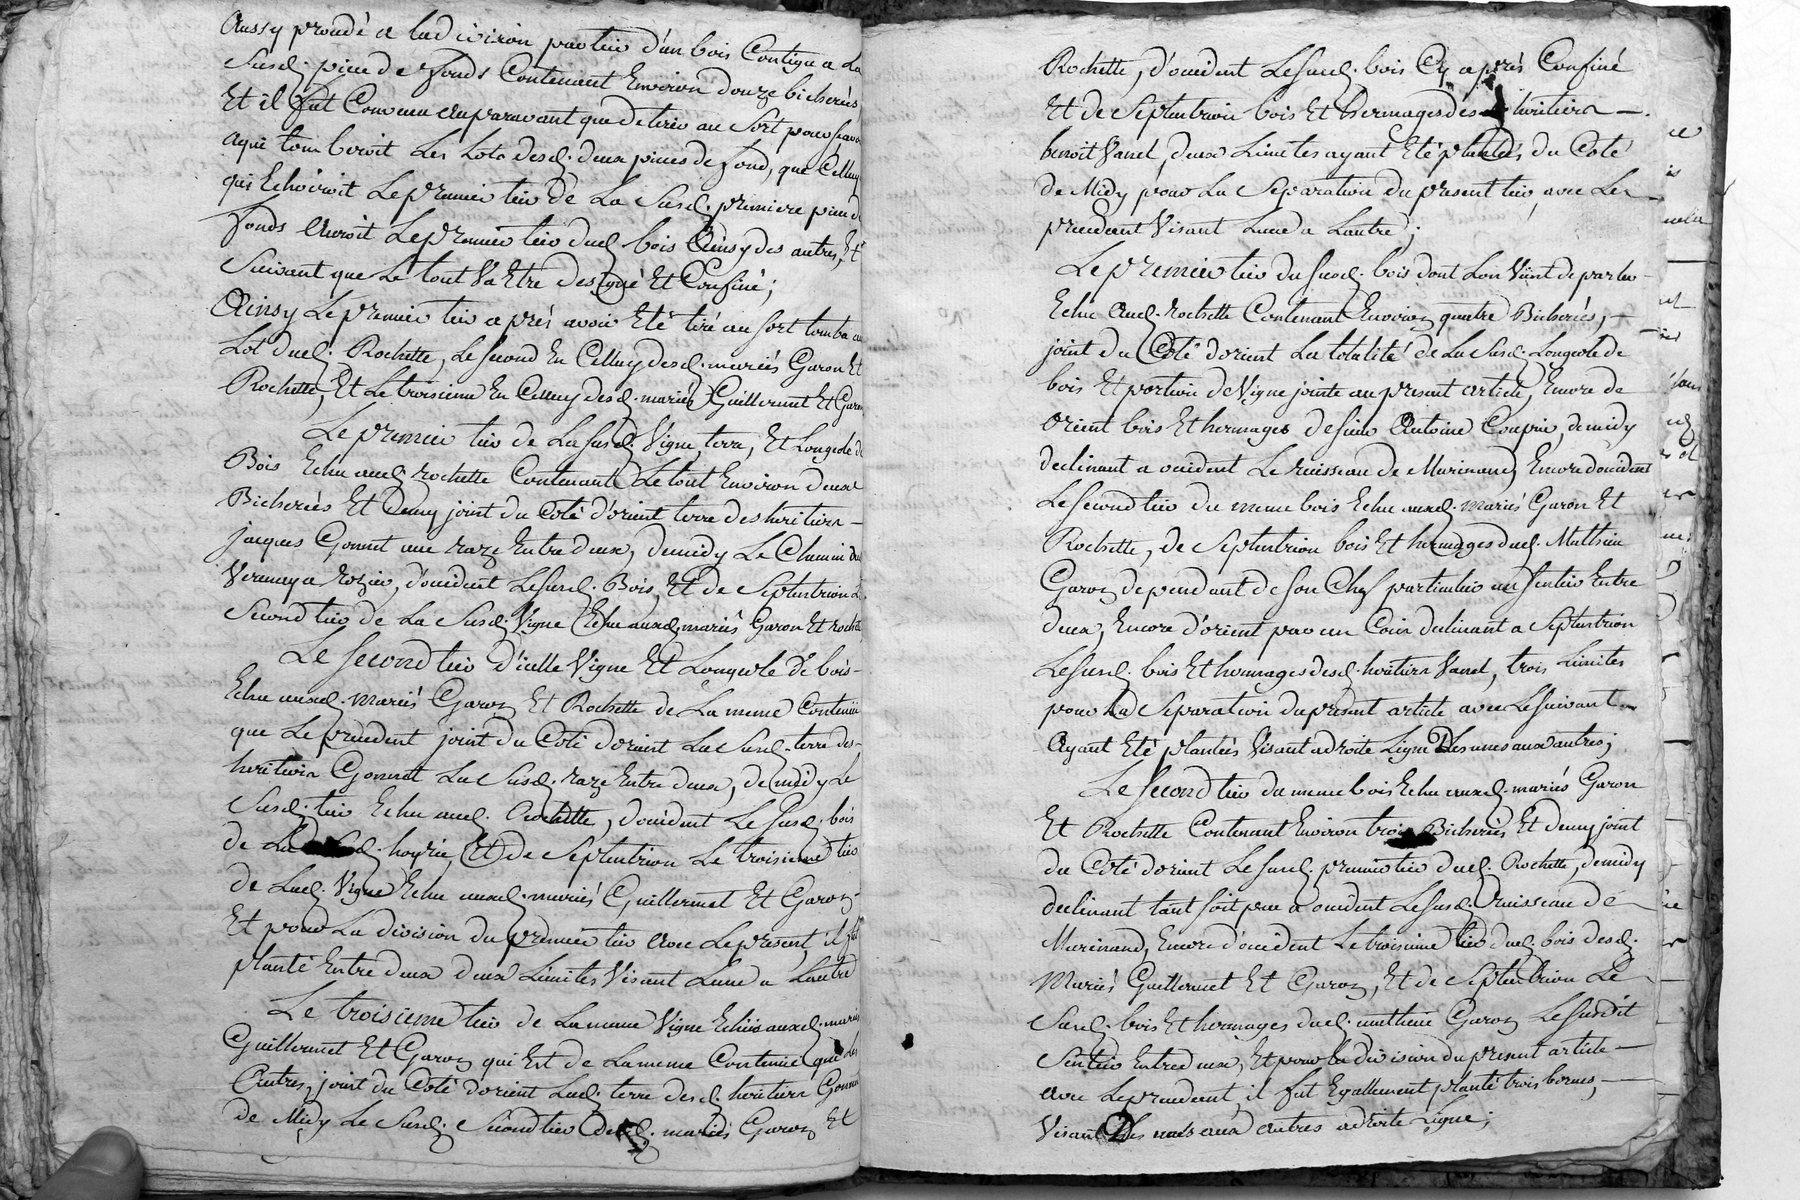 Aussy procédé a la division par tier d'un bois Contigu a La
Susd. piece de fonds Contenant Environ douze bicherées
Et il fut Convenu auparavant que de tirer au Sort pour scavoir
a qui tomberoit Les Lots desd. deux pieces de fond, que Celluy
qui Echeoiroit Le premier tier de La Susd. premiere piece de
fonds auroit Le premier tier dud. bois Ainsy des autres, Et
Suivant que Le tout Va Etre designé Et Confiné;
Ainsy Le premier tier aprés avoir Eté tiré au sort tomba au
Lot dud. Rochette, Le second En Celluy desd. mariés Garon Et
Rochette, Et Le troisieme En Celluy desd. mariés Guillermet Et Garon
Le premier tier de La susd. Vigne, terre, Et Longeole de
Bois Echu aud. rochette Contenant Le tout Environ deux
Bicherées Et demy joint du Coté d'orient terre des heritiers
jacques Gonnet une raze Entre deux, de midy Le Chemin du
Verenay a rozier, d'occident Le susd. Bois, Et de Septentrion Le
Second tier de La Susd. Vigne Echu auxd. mariés Garon Et rochette
Le second tier d'icelle Vigne Et Longeole de bois
Echu auxd. mariés Garon Et Rochette de La meme Contenüe
que Le precedent joint du Coté d'orient La Susd. terre des
heritiers Gonnet La Susd. raze Entre deux, de midy Le
Susd. tier Echu aud. Rochette, d'occident Le Susd. bois
de La d. hoyrie, Et de Septentrion Le troisieme tier
de Lad. Vigne Echu auxd. mariés Guillermet Et Garon
Et pour La division du premier tier avec Le present, il fut
planté Entre deux deux Limites Visant Lune a Lautre
Le troisieme tier de La meme Vigne Echüe auxd. mariés
Guillermet Et Garon qui Est de La meme Contenüe que Les
Autres, joint du Coté d'orient Lad. terre desd. heritiers Gonnet
de Midy Le Susd. Second tier desd. mariés Garon Et
Rochette, d'occident Le susd. bois Cy aprés Confiné
Et de Septentrion bois Et hermages des heritiers
benoit Vanel, deux Limites ayant Eté plantées du Coté
de Midy pour La Separation du present tier, avec Le
precedent Visant Lune a Lautre;
Le premier tier du susd. bois dont Lon Vient de parler
Echu Aud. rochette Contenant Environ quatre Bicherées,
joint du Coté d'orient La totalité de La Susd. Longeole de
bois Et portion de Vigne jointe au present article, Encore de
orient bois Et hermages de sieur Antoine Coupier, de midy
declinant a occident Le ruisseau de Marinand, Encore d'occident
Le second tier du meme bois Echu auxd. mariés Garon Et
Rochette, de Septentrion bois Et hermages dud. Mathieu
Garon dependant de son Chef particulier un sentier Entre
deux, Encore d'orient par un Coin declinant a Septentrion
Le susd. bois Et hermages desd. heritiers Vanel, trois Limites
pour La Separation du present article avec Le suivant
Ayant Eté plantées Visant a droite Ligne Les unes aux autres;
Le second tier du meme bois Echu auxd. mariés Garon
Et Rochette Contenant Environ trois Bicherées Et demy joint
du Coté d'orient Le susd. premier tier dud. Rochette, de midy
declinant tant soit peu a occident Le susd. Ruisseau de
Marinand, Encore d'occident Le troisieme tier dud. bois desd.
Mariés Guillermet Et Garon, Et de Septentrion Le
Susd. bois Et hermages dud. mathieu Garon Le susdit
Sentier Entre deux, Et pour la division du present article
avec Le precedent, il fut Egallement planté trois bornes,
Visant Les unes aux autres a droite Ligne;